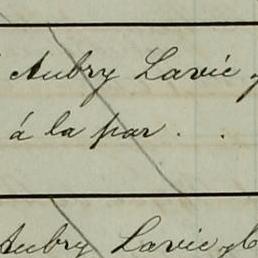 Aubry Lavie y
á la par . .
Aubry Lavie y C